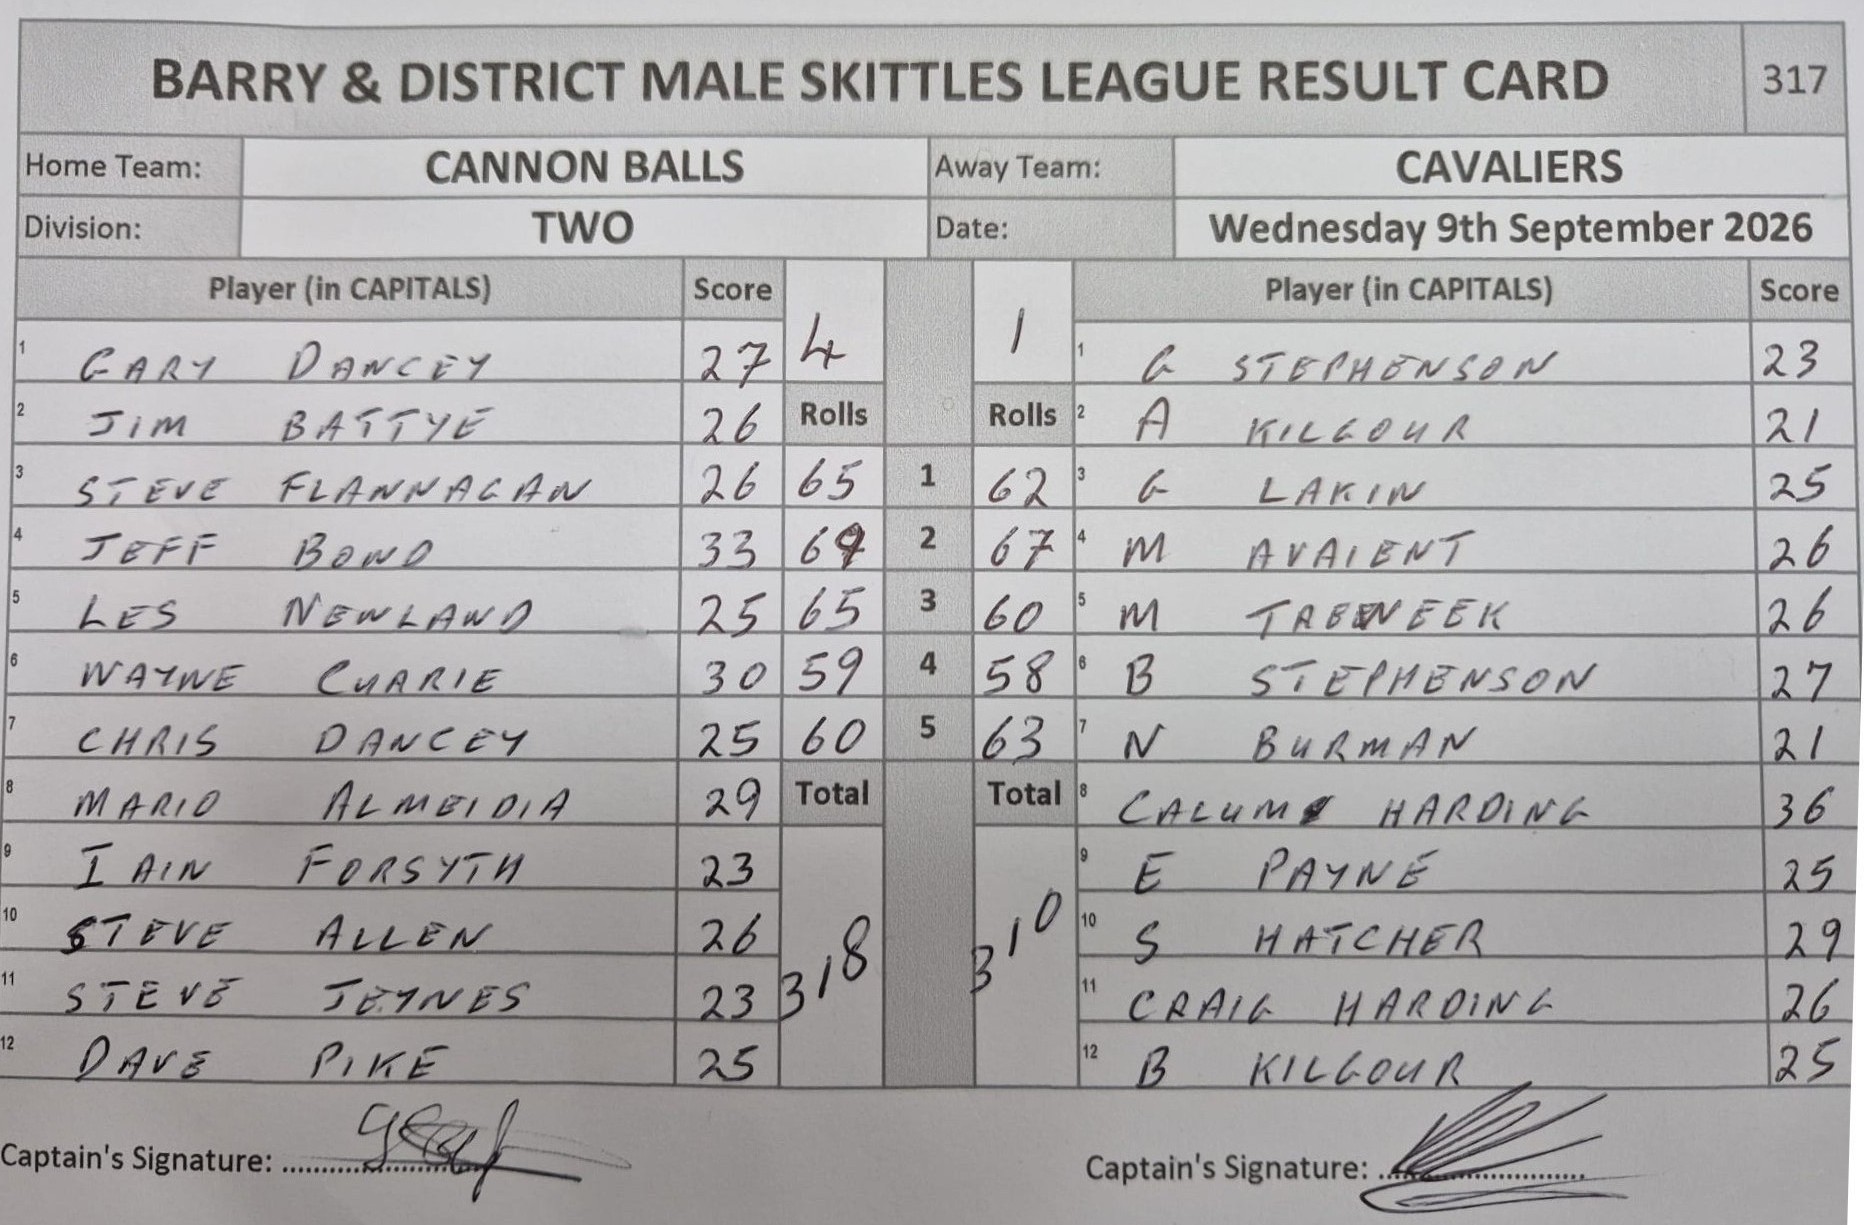 BARRY & DISTRICT MALE SKITTLES LEAGUE RESULT CARD 317
Home Team: CANNON BALLS Away Team: CAVALIERS
Division: TWO Date: Wednesday 9th September 2026
Player (in CAPITALS) Score 4 1 Player (in CAPITALS) Score
1 GARY DANCEY 27 1 G STEPHENSON 23
2 JIM BATTYE 26 Rolls Rolls 2 A KILGOUR 21
3 STEVE FLANNAGAN 26 65 1 62 3 G LAKIN 25
4 JEFF BOND 33 69 2 67 4 M AVAIENT 26
5 LES NEWLAND 25 65 3 60 5 M 26
6 WAYNE CUARIE 30 59 4 58 6 B STEPHENSON 27
7 CHRIS DANCEY 25 60 5 63 7 N BURMAN 21
8 MARIO ALMEIDIA 29 Total Total 8 CALUM HARDING 36
9 IAIN FORSYTH 23 9 E PAYNE 25
10 STEVE ALLEN 26 318 310 10 S HATCHER 29
11 STEVE JEYNES 23 11 CRAIG HARDING 26
12 DAVE PIKE 25 12 B KILGOUR 25
Captain's Signature: Captain's Signature: